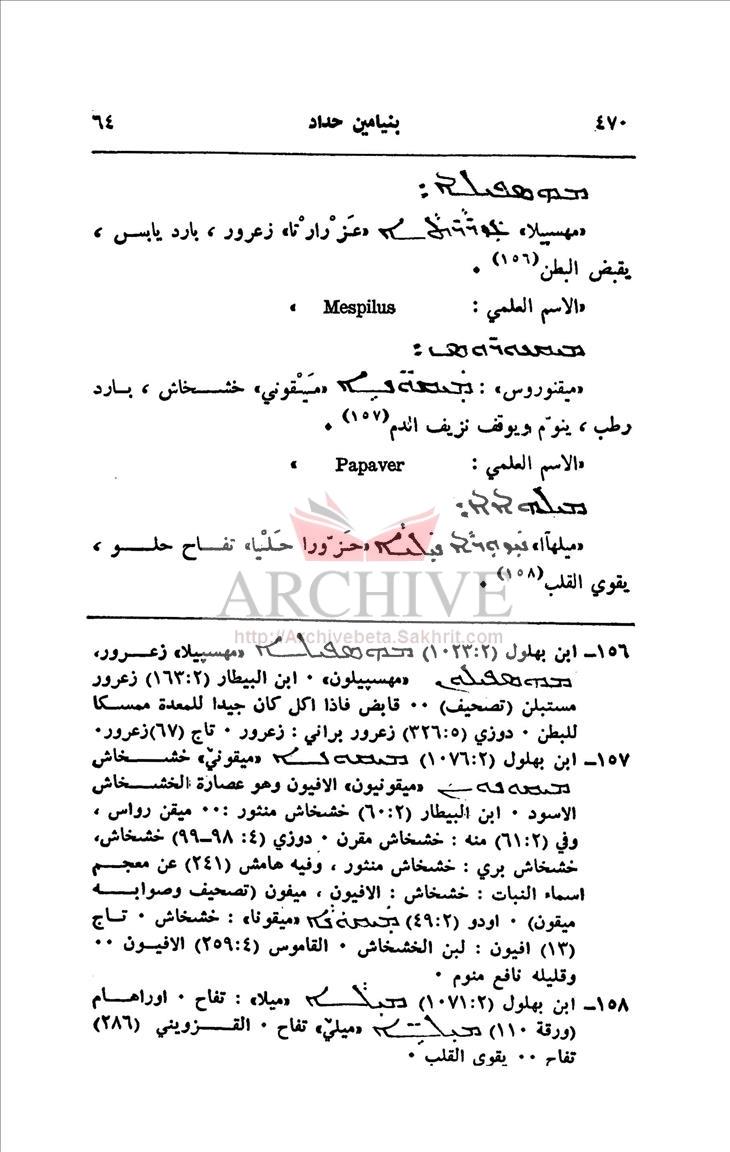 ٤٧٠ بنيامين حداد ٦٤
ܡܗܣܦܝܠܐ :
«مهسپيلا» «عَزْرارْتا» زعرور ، بارد يابس ،
يقبض البطن(١٥٦) ٠
«الاسم العلمي : Mespilus »
«ميقنوروس» : «مَيْقوني» خشـخاش ، بـارد
رطب ، ينوّم ويوقف نزيف الدم(١٥٧) ٠
«الاسم العلمي : Papaver »
«ميلهاآ» «حَزّورا حَلْيا» تفـاح حلـو ،
يقوي القلب(١٥٨) ٠
ARCHIVE
http://Archivebeta.Sakhrit.com
١٥٦ـ ابن بهلول (١٠٢٣:٢) ܡܗܣܦܝܠܐ «مهسپيلا» زعـرور،
«مهسپيلون» ٠ ابن البيطار (١٦٣:٢) زعرور
مستبلن (تصحيف) ٠٠ قابض فاذا اكل كان جيدا للمعدة ممسكا
للبطن ٠ دوزي (٣٢٦:٥) زعرور براني : زعرور ٠ تاج (٦٧)زعرور٠
١٥٧ـ ابن بهلول (١٠٧٦:٢) «ميقونيّ» خشـخاش
«ميقونيون» الافيون وهو عصارة الخشخاش
الاسود ٠ ابن البيطار (٦٠:٢) خشخاش منثور :٠٠ ميقن رواس ،
وفي (٦١:٢) منه : خشخاش مقرن ٠ دوزي (٤: ٩٨ـ٩٩) خشخاش،
خشخاش بري : خشخاش منثور ، وفيه هامش (٢٤١) عن معجم
اسماء النبات : خشخاش : الافيون ، ميفون (تصحيف وصوابـه
ميقون) ٠ اودو (٤٩:٢) «ميقونا» : خشخاش ٠ تـاج
(١٣) افيون : لبن الخشخاش ٠ القاموس (٢٥٩:٤) الافيـون ٠٠
وقليله نافع منوم ٠
١٥٨ـ ابن بهلول (١٠٧١:٢) «ميلا» : تفاح ٠ اوراهـام
(ورقة ١١٠) «ميليّ» تفاح ٠ القـزويني (٢٨٦)
تفاح ٠٠ يقوي القلب ٠